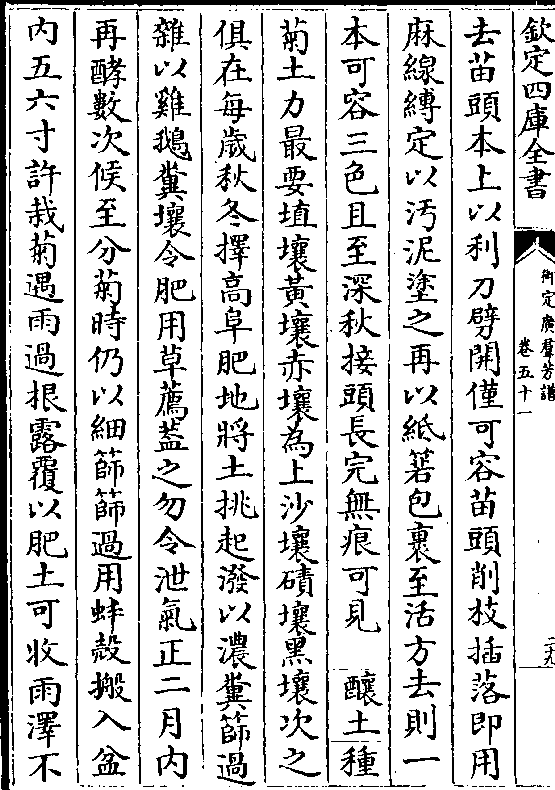 欽定四庫全書
御定廣羣芳譜
卷五十一
二十九
去苗頭本上以利刀劈開僅可容苗頭削枝插落即用
麻線縛定以汚泥塗之再以紙箬包裹至活方去則一
本可容三色且至深秋接頭長完無痕可見　釀土種
菊土力最要埴壤黃壤赤壤為上沙壤磧壤黑壤次之
俱在每歲秋冬擇高阜肥地將土挑起潑以濃糞篩過
雜以雞鵝糞壤令肥用草薦葢之勿令泄氣正二月内
再酵數次候至分菊時仍以細篩篩過用蚌殻搬入盆
内五六寸許栽菊遇雨過根露覆以肥土可收雨澤不